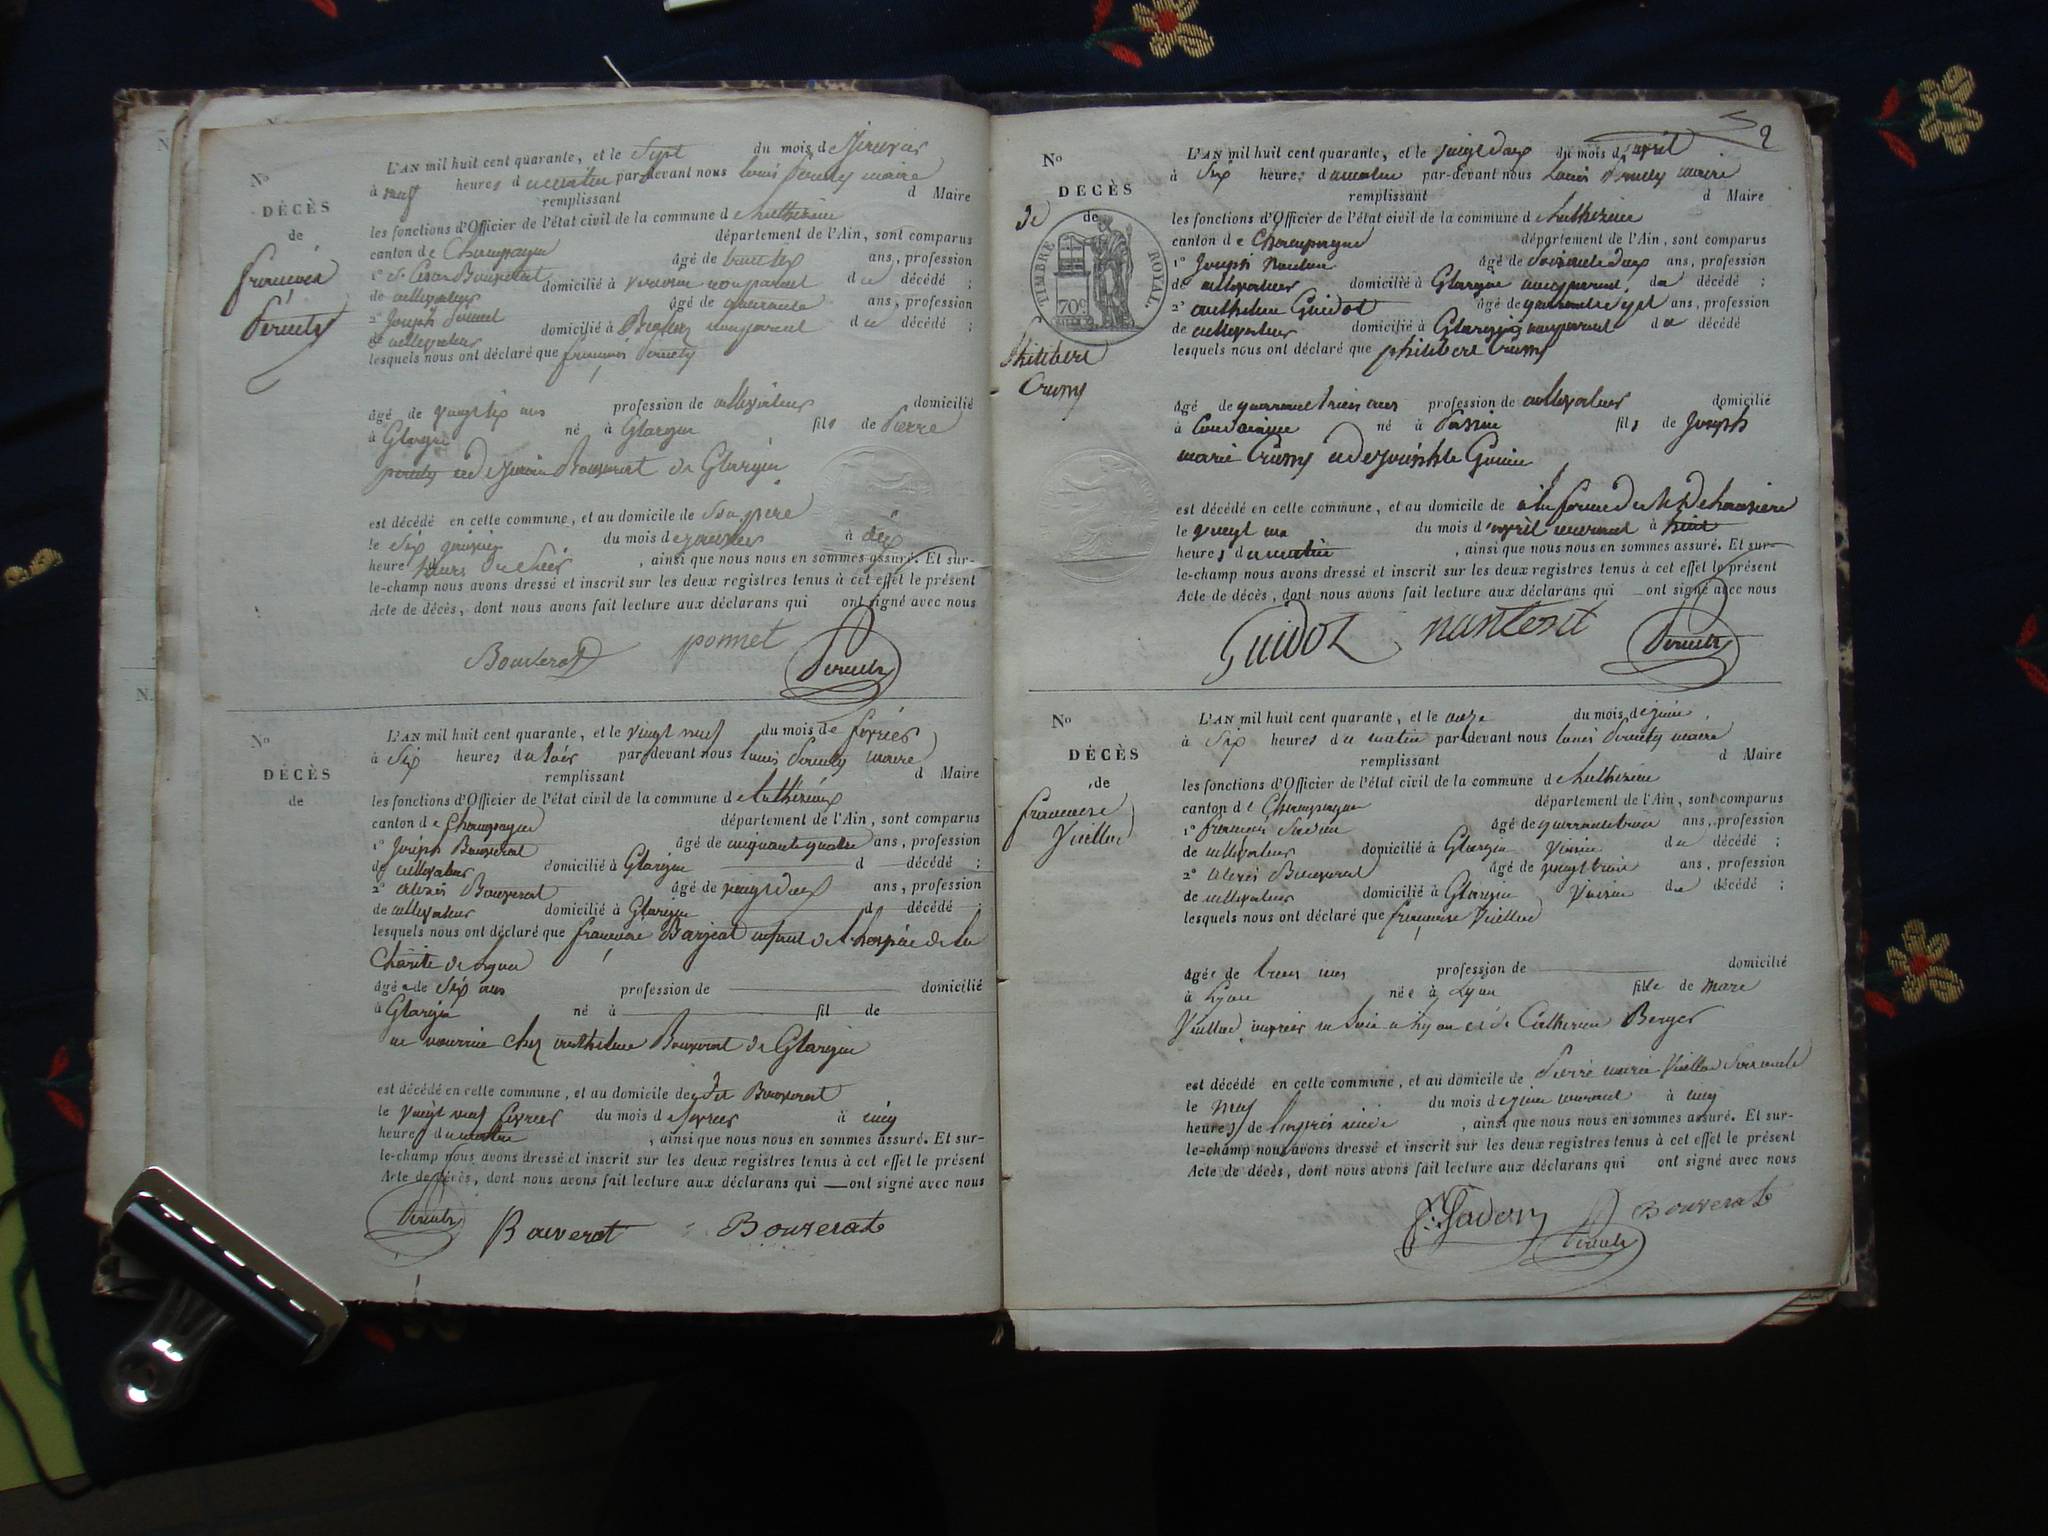 N°
DÉCÈS
de
françois
Perrely
L'AN mil huit cent quarante, et le Sept du mois de Janvier
à neuf heures du matin par-devant nous Louis maire
remplissant d Maire
les fonctions d'Officier de l'état civil de la commune d
canton de Champagne département de l'Ain, sont comparus
1° âgé de ans, profession
de cultivateur domicilié à non parent du décédé ;
2° Joseph âgé de quarante ans, profession
de cultivateur domicilié à non parent du décédé ;
lesquels nous ont déclaré que françois
âgé de vingt six ans profession de cultivateur domicilié
à Glargin né à Glargin fils de Pierre
et de Bouverat de Glargin
est décédé en cette commune, et au domicile de Son père
le Six janvier du mois de janvier à dix
heure heures du Soir, ainsi que nous nous en sommes assuré. Et sur-
le-champ nous avons dressé et inscrit sur les deux registres tenus à cet effet le présent
Acte de décès, dont nous avons fait lecture aux déclarans qui ont signé avec nous
Bouverat ponnet
N°
DÉCÈS
de
L'AN mil huit cent quarante, et le vingt neuf du mois de février
à Six heures du Soir par-devant nous Louis maire
remplissant d Maire
les fonctions d'Officier de l'état civil de la commune d
canton de Champagne département de l'Ain, sont comparus
1° Joseph Bouverat âgé de cinquante quatre ans, profession
de cultivateur domicilié à Glargin d décédé ;
2° alexis Bouverat âgé de vingt deux ans, profession
de cultivateur domicilié à Glargin d décédé ;
lesquels nous ont déclaré que françoise enfant de l'hospice de la
Charité de Lyon
âgée de Six ans profession de domicilié
à Glargin né à fil de
en nourrice chez anthelme Bouverat de Glargin
est décédé en cette commune, et au domicile de Bouverat
le vingt neuf février du mois de février à cinq
heures du matin, ainsi que nous nous en sommes assuré. Et sur-
le-champ nous avons dressé et inscrit sur les deux registres tenus à cet effet le présent
Acte de décès, dont nous avons fait lecture aux déclarans qui ont signé avec nous
Bouverat Bouverat
2
N°
DÉCÈS
de
de
TIMBRE ROYAL
70c
Philibert
Crussy
L'AN mil huit cent quarante, et le vingt deux du mois d'avril
à Six heures du matin par-devant nous Louis maire
remplissant d Maire
les fonctions d'Officier de l'état civil de la commune d
canton de Champagne département de l'Ain, sont comparus
1° Joseph âgé de Soixante deux ans, profession
de cultivateur domicilié à Glargin non parent du décédé ;
2° anthelme Guidot âgé de quarante sept ans, profession
de cultivateur domicilié à Glargin non parent du décédé
lesquels nous ont déclaré que philibert Crussy
âgé de quarante trois ans profession de cultivateur domicilié
à né à fils de Joseph
marie Crussy et de
est décédé en cette commune, et au domicile de à la ferme de
le vingt un du mois d'avril courant à huit
heures du matin, ainsi que nous nous en sommes assuré. Et sur-
le-champ nous avons dressé et inscrit sur les deux registres tenus à cet effet le présent
Acte de décès, dont nous avons fait lecture aux déclarans qui ont signé avec nous
Guidot
N°
DÉCÈS
de
françoise
Vuilliod
L'AN mil huit cent quarante, et le onze du mois de juin
à Six heures du matin par-devant nous Louis maire
remplissant d Maire
les fonctions d'Officier de l'état civil de la commune d
canton de Champagne département de l'Ain, sont comparus
1° françois âgé de quarante trois ans, profession
de cultivateur domicilié à Glargin voisin du décédé ;
2° alexis Bouverat âgé de vingt trois ans, profession
de cultivateur domicilié à Glargin voisin du décédé ;
lesquels nous ont déclaré que françoise
âgée de trois ans profession de domicilié
à Lyon née à Lyon fille de Marc
en Soie à Lyon et de Catherine Berger
est décédé en cette commune, et au domicile de Pierre marie
le neuf du mois de juin courant à cinq
heures de l'après midi, ainsi que nous nous en sommes assuré. Et sur-
le-champ nous avons dressé et inscrit sur les deux registres tenus à cet effet le présent
Acte de décès, dont nous avons fait lecture aux déclarans qui ont signé avec nous
Bouverat